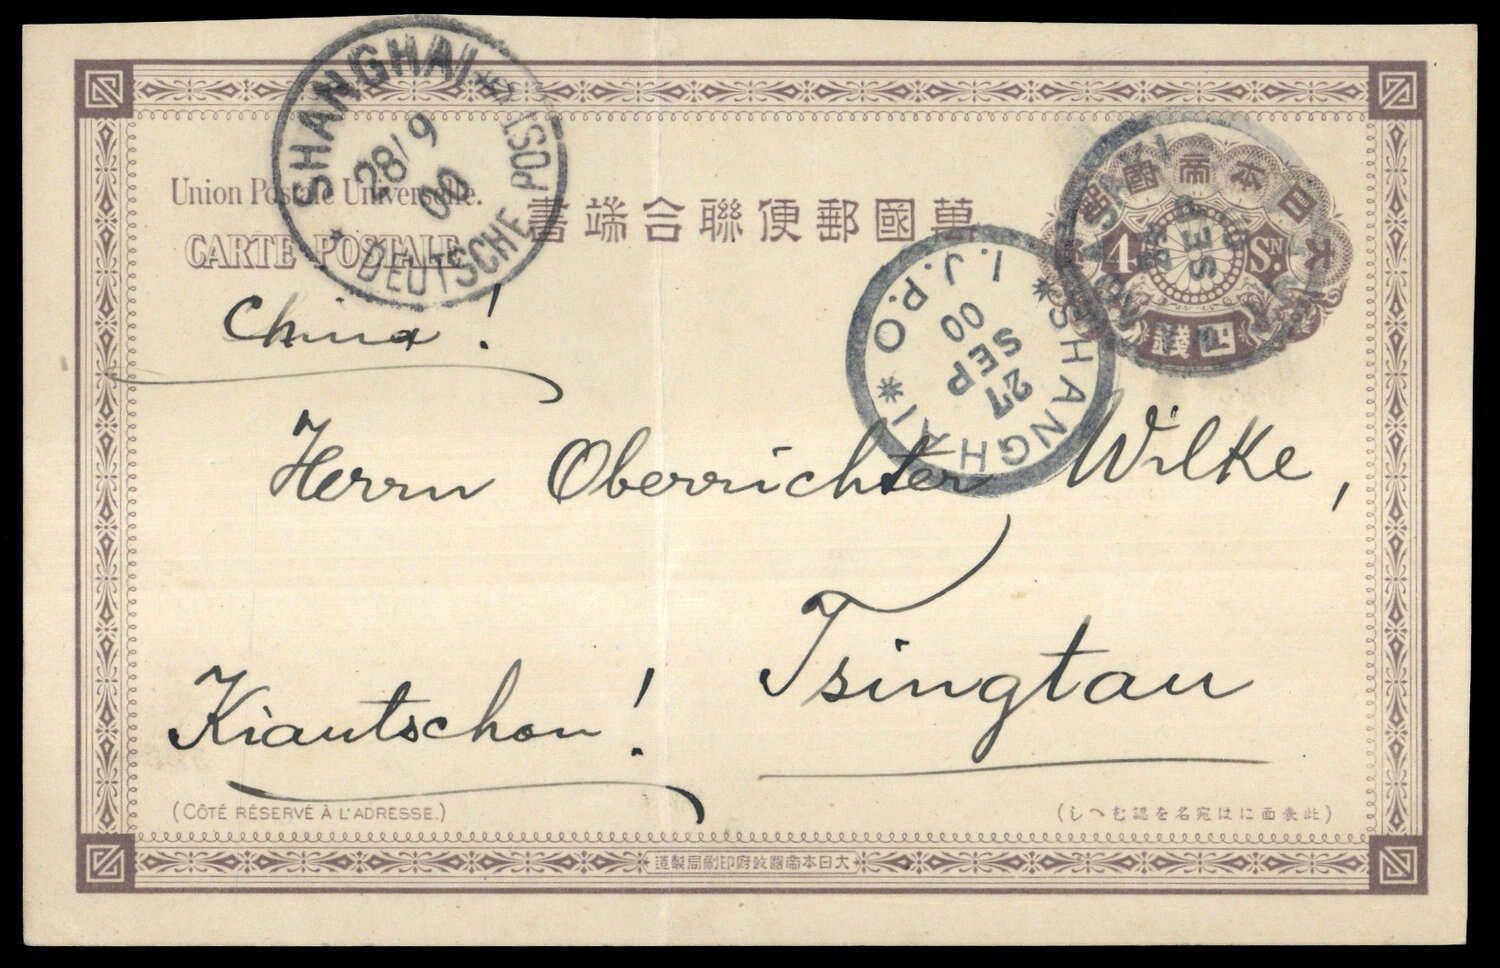 SHANGHAI
28/9
00
DEUTSCHE POST
Union Postale Universelle.
CARTE POSTALE
萬國郵便聯合端書
大日本帝國郵
4 SN.
四錢
I.J.P.O
SHANGHAI
27
SEP
00
China!
Herrn Oberrichter Wilke,
Tsingtau
Kiautschou!
(CÔTÉ RÉSERVÉ À L'ADRESSE.)
(此表面にはな宛名を認むへし)
大日本帝國政府印刷局製造